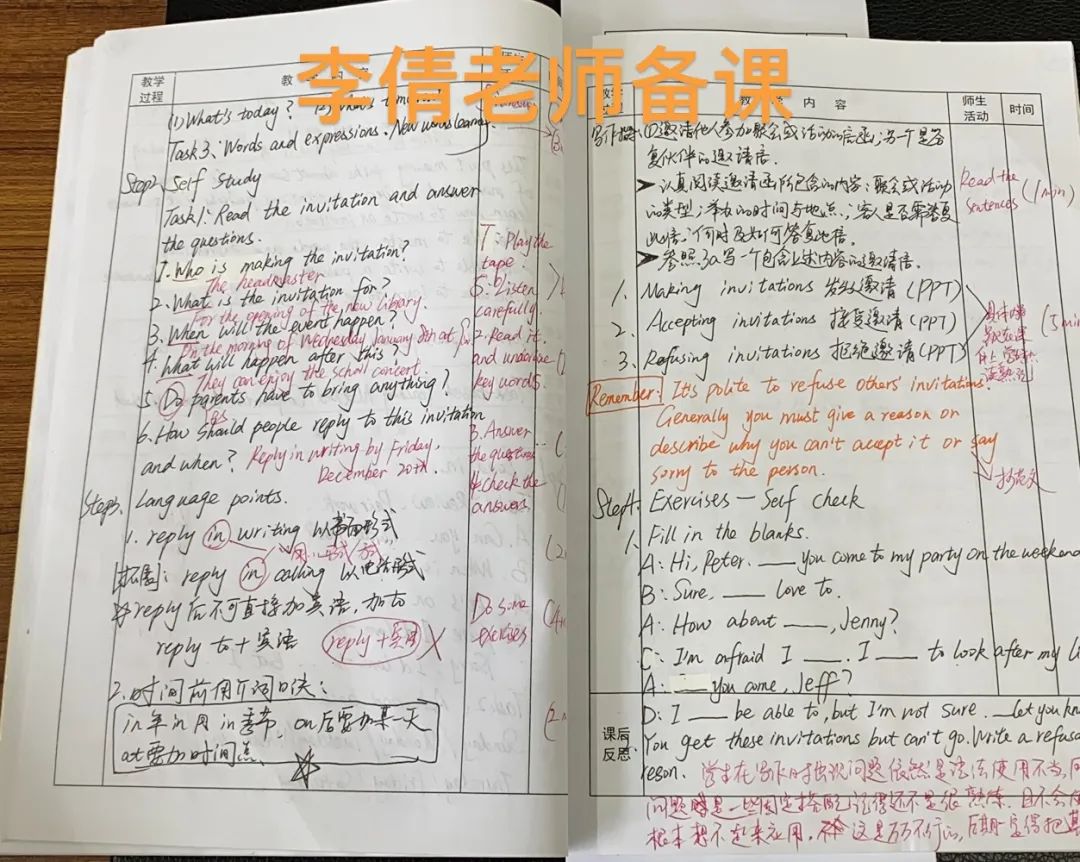 李倩老师备课
教学过程
教 学 内 容
(1) What's today?
Task 3: Words and expressions. New words learning.
Step2. Self study
Task1: Read the invitation and answer
the questions.
1. Who is making the invitation?
The headmaster
2. What is the invitation for?
For the opening of the new library.
3. When will the event happen?
On the morning of Wednesday January 8th at
4. What will happen after this?
They can enjoy the school concert.
5. Do parents have to bring anything?
6. How should people reply to this invitation
and when? Reply in writing by Friday,
December 20th.
Step3. Language points.
1. reply in writing 以书面形式
[拓展]: reply in calling 以电话形式
reply后不可直接加宾语,加to
reply to + 宾语 reply + 宾语 X
2. 时间前用介词口诀:
in年in月in季节, on后要加某一天
at要加时间点
T: Play the
tape.
S: Listen
carefully.
2. Read it
and underline
key words.
3. Answer
the questions
4. Check the
answers.
Do some
exercises
教 学 内 容
师生活动
时间
写作指导: ①邀请他人参加聚会或活动的信函;另一个是答
复伙伴的邀请信
➤ 认真阅读邀请函所包含的内容:聚会或活动
的类型;举办的时间与地点;客人是否需答复
此信;何时及如何答复此信.
➤ 参照3a写一个包含上述内容的邀请信.
Read the
sentences (1min)
1. Making invitations 发出邀请 (PPT)
2. Accepting invitations 接受邀请 (PPT)
3. Refusing invitations 拒绝邀请 (PPT)
Remember: It's polite to refuse others' invitations.
Generally you must give a reason or
describe why you can't accept it or say
sorry to the person.
抄范文
Step4. Exercises — Self check
1. Fill in the blanks.
A: Hi, Peter. ___ you come to my party on the weekend
B: Sure, ___ love to.
A: How about ___, Jenny?
C: I'm afraid I ___. I ___ to look after my li
A: ___ you come, Jeff?
D: I ___ be able to, but I'm not sure. ___ let you kno
课后反思
You get these invitations but can't go. Write a refusa
reson. 学生在写作时出现问题依然是语法使用不当,
问题 是一些固定搭配记得还不是很熟练,且不会
根本想不起来应用, 这是万万不行的,后期一定得把